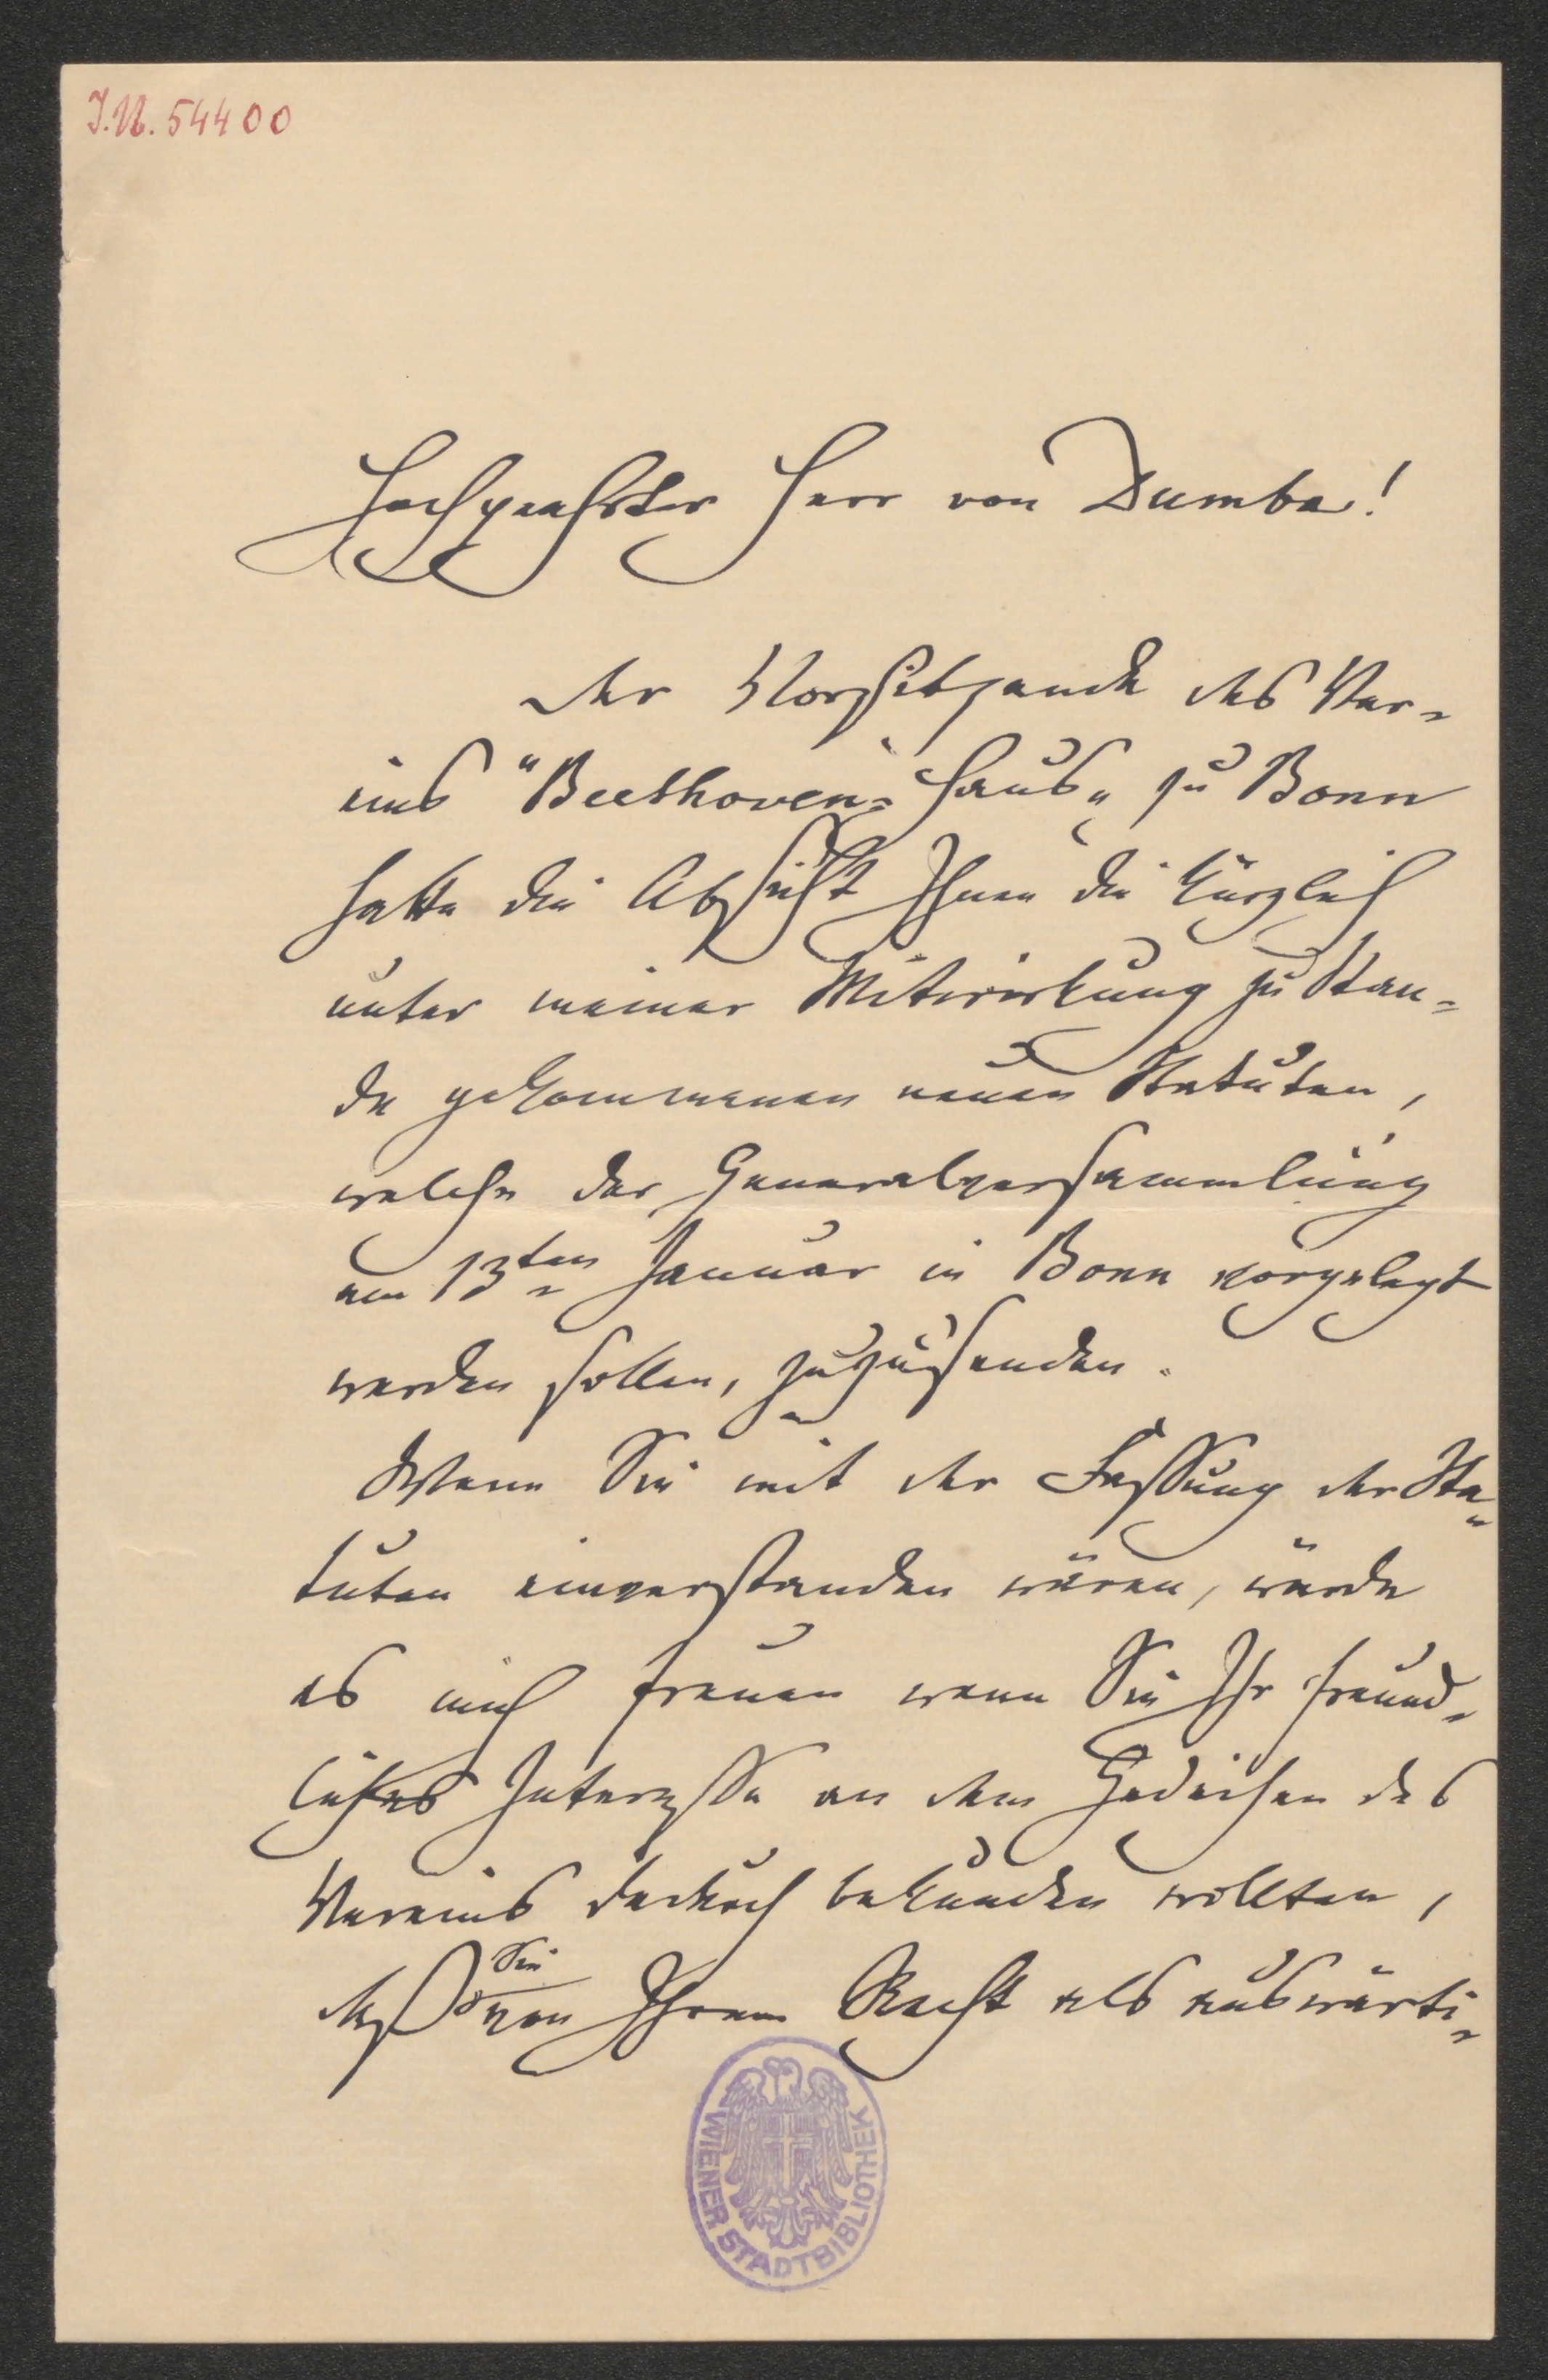 J.N. 54400
Hochgeehrter Herr von Dumba!
Der Vorsitzende des Ver=
eins "Beethoven=Haus„ zu Bonn
hatte die Absicht Ihnen die kürzlich
unter meiner Mitwirkung zu Stan=
de gekommenen neuen Statuten,
welche der Generalversammlung
am 13ten Januar in Bonn vorgelegt
werden sollen, zuzusenden.
Wenn Sie mit der Fassung der Sta=
tuten einverstanden wären, würde
es mich freuen wenn Sie Ihr freund=
liches Interesse an dem Gedeihen des
Vereins dadurch bekunden wollten,
daß Sie von Ihrem Recht als auswärti=
WIENER STADTBIBLIOTHEK